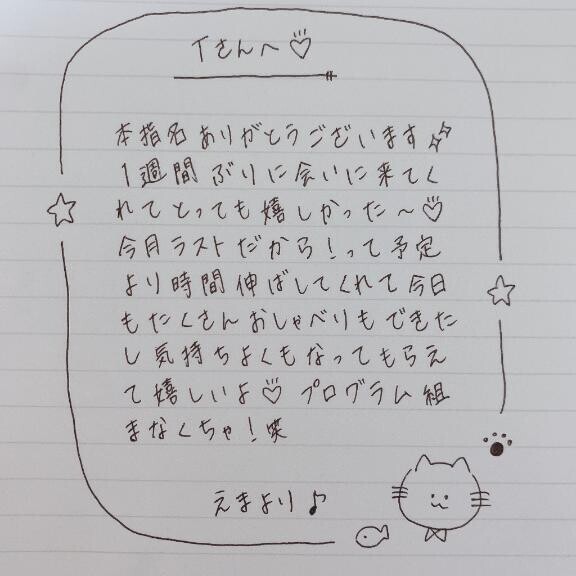 Tさんへ♡
本指名ありがとうございます✨
1週間ぶりに会いに来てく
れてとっても嬉しかった〜♡
今月ラストだから！って予定
より時間伸ばしてくれて今日
もたくさんおしゃべりもできた
し気持ちよくもなってもらえ
て嬉しいよ♡ プログラム組
まなくちゃ！笑
えまより♪